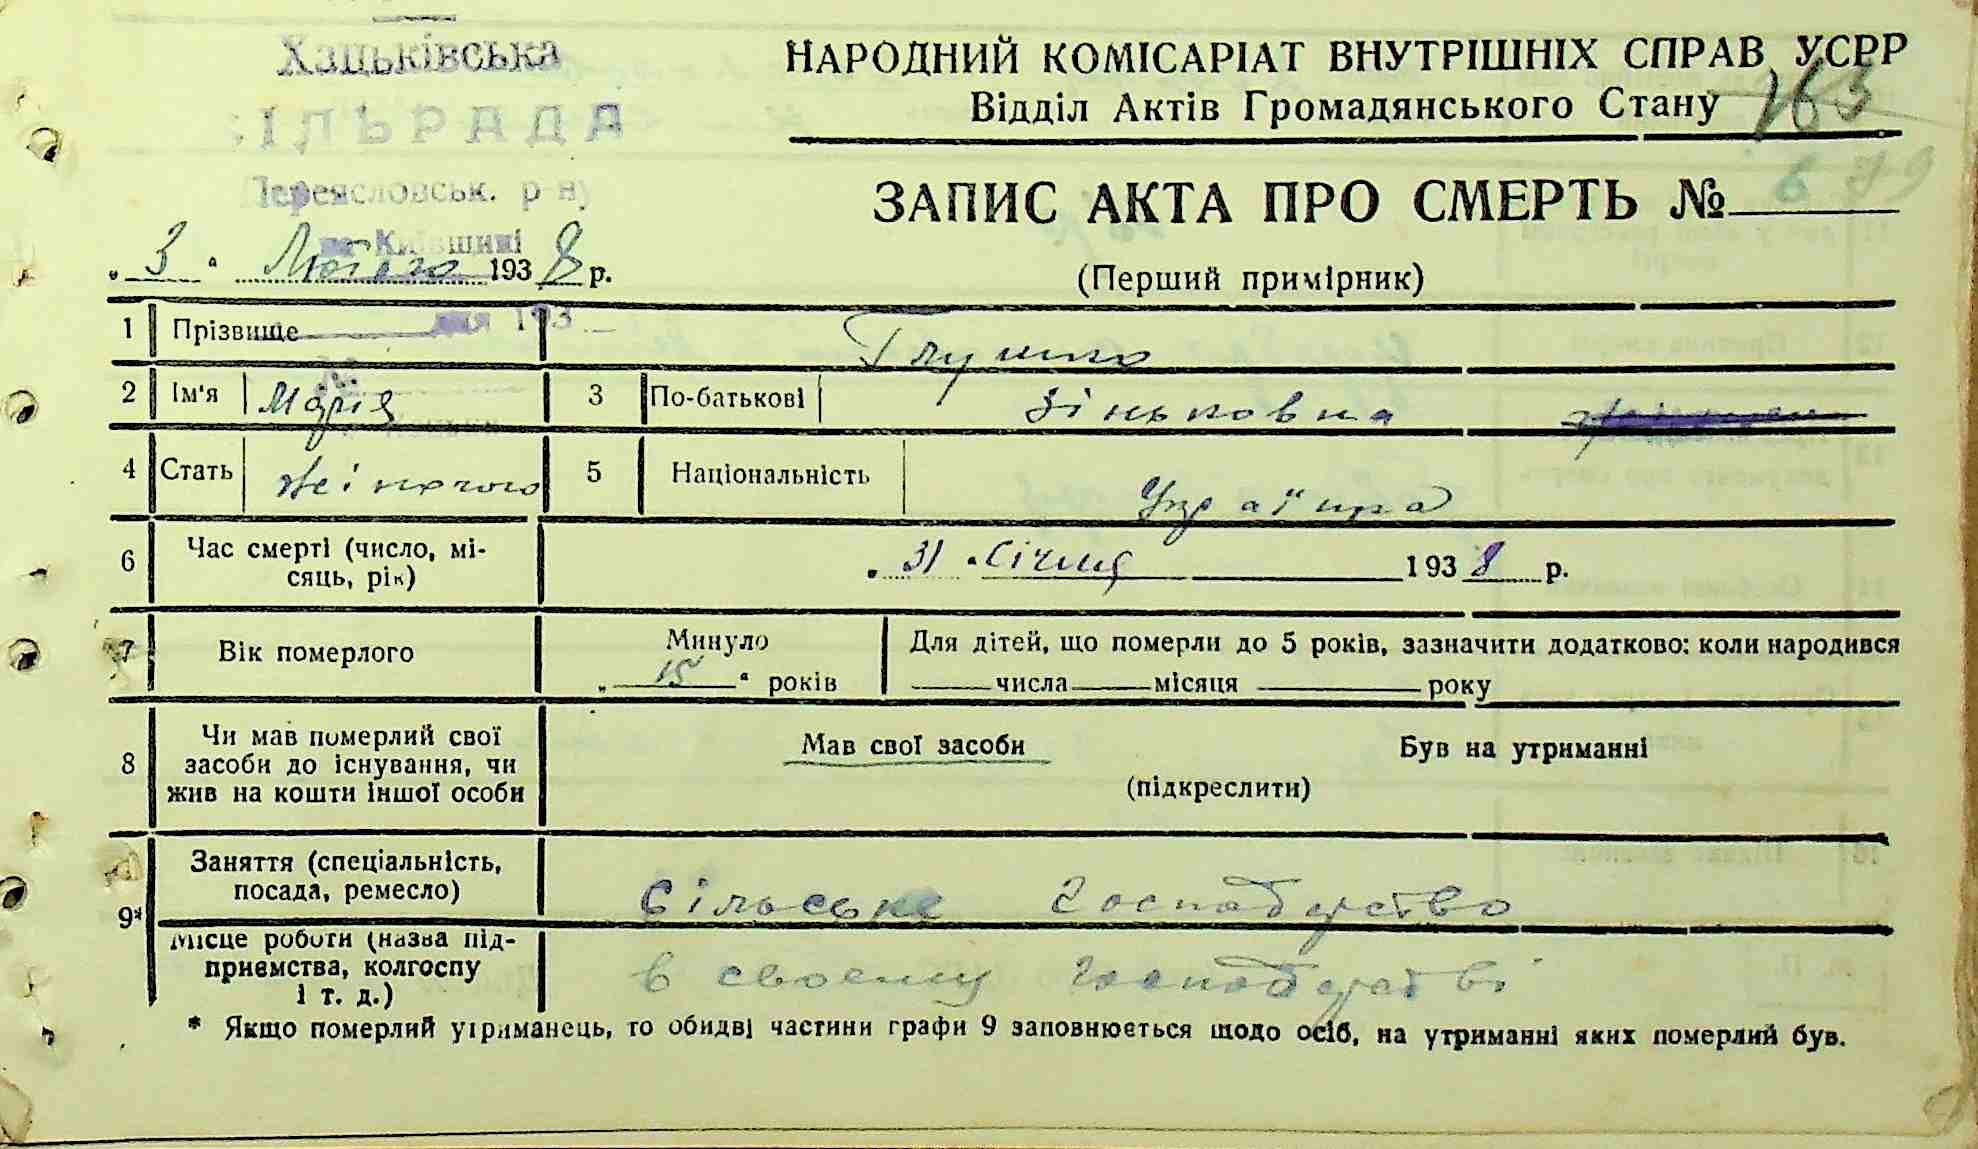 Хацьківська
СІЛЬРАДА
Переясловськ. р-ну
на Київщині
НАРОДНИЙ КОМІСАРІАТ ВНУТРІШНІХ СПРАВ УСРР
Відділ Актів Громадянського Стану
163
ЗАПИС АКТА ПРО СМЕРТЬ № 6 79
(Перший примірник)
„ 3 " Лютого 1938 р.
дня 193
1 Прізвище Глушко
2 Ім'я Марія 3 По-батькові Зіньковна
4 Стать жіночого 5 Національність Українка
6 Час смерті (число, мі-
сяць, рік) „ 31 " Січня 1938 р.
7 Вік померлого Минуло
„ 15 " років
Для дітей, що померли до 5 років, зазначити додатково: коли народився
числа місяця року
8 Чи мав померлий свої
засоби до існування, чи
жив на кошти іншої особи
Мав свої засоби Був на утриманні
(підкреслити)
9* Заняття (спеціальність,
посада, ремесло) Сільське господарство
Місце роботи (назва під-
приємства, колгоспу
і т. д.) в своему господарстві
* Якщо померлий утриманець, то обидві частини графи 9 заповнюється щодо осіб, на утриманні яких померлий був.